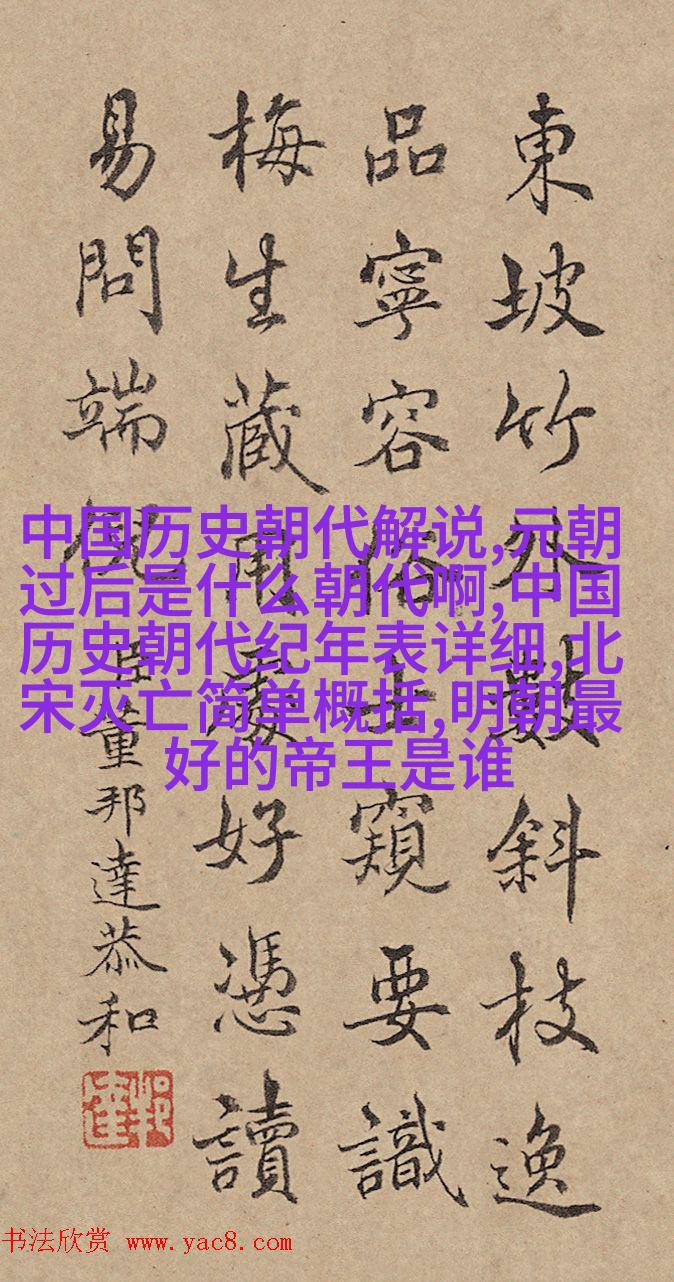 東坡竹外數斜枝逸
品寧容俗士窺要識
梅生藏用處好憑讀
易問端倪臣董邦達恭和
中国历史朝代解说,元朝
过后是什么朝代啊,中国
历史朝代纪年表详细,北
宋灭亡简单概括,明朝最
好的帝王是谁
书法欣赏 www.yac8.com